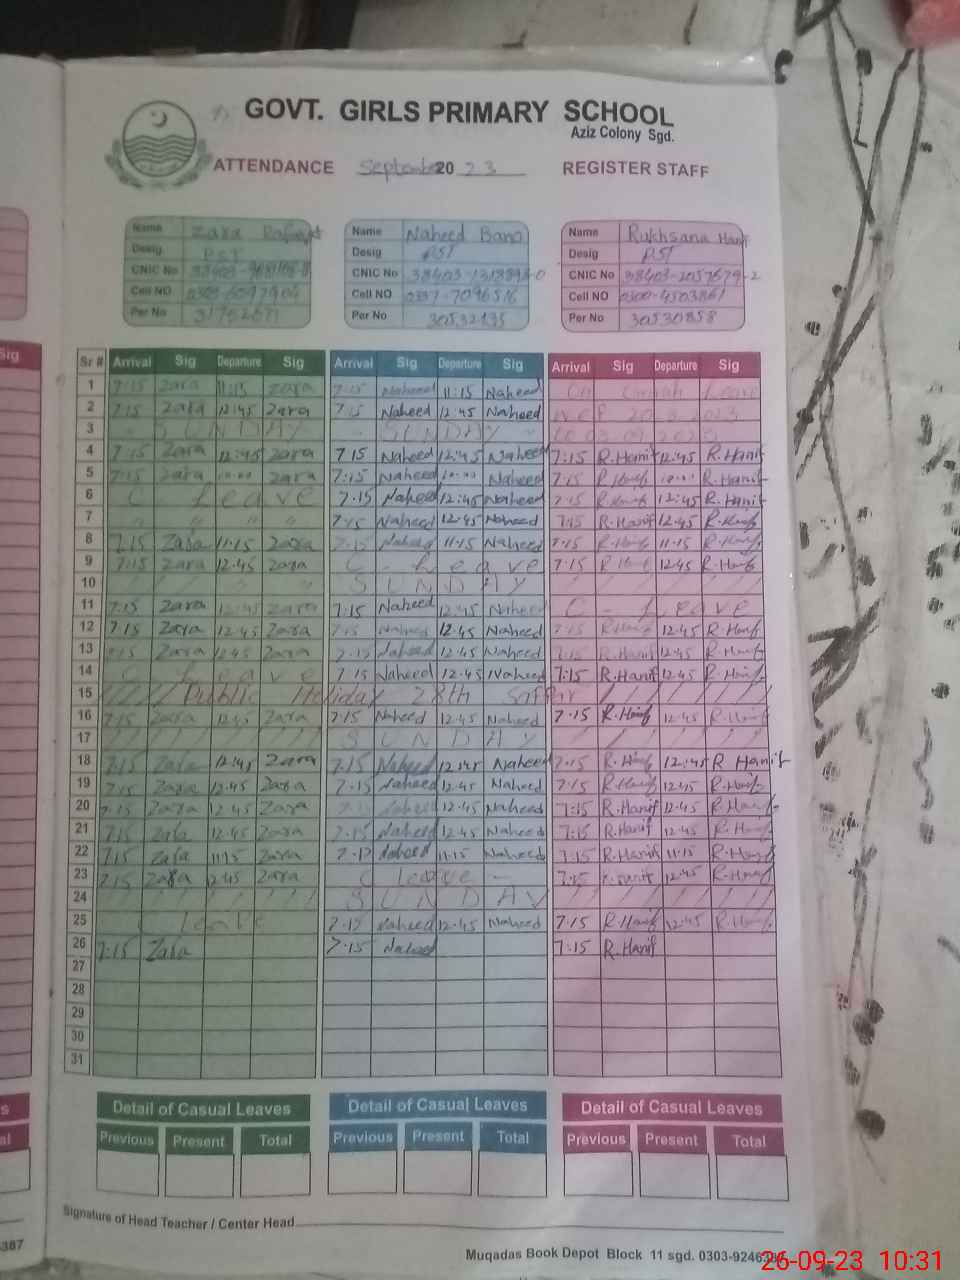 GOVT. GIRLS PRIMARY SCHOOL
Aziz Colony Sgd.
ATTENDANCE September 2023 REGISTER STAFF
Name Zara Name Naheed Bano Name Rukhsana Hanif
Desig PST Desig PST Desig PST
CNIC No CNIC No CNIC No 38403-2057679-2
Cell NO Cell NO 0337-7096516 Cell NO 0300-4503861
Per No Per No 30532135 Per No 30530858
Sr # Arrival Sig Departure Sig Arrival Sig Departure Sig Arrival Sig Departure Sig
1 7:15 Zara 11:15 Zara 7:15 Naheed 11:15 Naheed On Leave
2 7:15 Zara 12:45 Zara 7:15 Naheed 12:45 Naheed
3 SUNDAY - SUNDAY -
4 7:15 Zara 12:45 Zara 7:15 Naheed 12:45 Naheed 7:15 R.Hanif 12:45 R.Hanif
5 7:15 Zara Zara 7:15 Naheed Naheed 7:15 R.Hanif R.Hanif
6 C Leave 7:15 Naheed 12:45 Naheed 7:15 R.Hanif 12:45 R.Hanif
7 " " " " 7:15 Naheed 12:45 Naheed 7:15 R.Hanif 12:45 R.Hanif
8 7:15 Zara 11:15 Zara 7:15 Naheed 11:15 Naheed 7:15 R.Hanif 11:15 R.Hanif
9 7:15 Zara 12:45 Zara C - Leave 7:15 R.Hanif 12:45 R.Hanif
10 SUNDAY
11 7:15 Zara 12:45 Zara 7:15 Naheed 12:45 Naheed C - Leave
12 7:15 Zara 12:45 Zara 7:15 Naheed 12:45 Naheed 7:15 R.Hanif 12:45 R.Hanif
13 7:15 Zara 12:45 Zara 7:15 Naheed 12:45 Naheed 7:15 R.Hanif 12:45 R.Hanif
14 C Leave 7:15 Naheed 12:45 Naheed 7:15 R.Hanif 12:45 R.Hanif
15 Public Holiday 28th Saffar
16 7:15 Zara 12:45 Zara 7:15 Naheed 12:45 Naheed 7:15 R.Hanif 12:45 R.Hanif
17 SUNDAY
18 7:15 Zara 12:45 Zara 7:15 Naheed 12:45 Naheed 7:15 R.Hanif 12:45 R Hanif
19 7:15 Zara 12:45 Zara 7:15 Naheed 12:45 Naheed 7:15 R.Hanif 12:45 R.Hanif
20 7:15 Zara 12:45 Zara 7:15 Naheed 12:45 Naheed 7:15 R.Hanif 12:45 R.Hanif
21 7:15 Zara 12:45 Zara 7:15 Naheed 12:45 Naheed 7:15 R.Hanif 12:45 R.Hanif
22 7:15 Zara 11:15 Zara 7:15 Naheed 11:15 Naheed 7:15 R.Hanif 11:15 R.Hanif
23 7:15 Zara 12:45 Zara C leave - 7:15 R.Hanif 12:45 R.Hanif
24 SUNDAY
25 C leave 7:15 Naheed 12:45 Naheed 7:15 R.Hanif 12:45 R.Hanif
26 7:15 Zara 7:15 Naheed 7:15 R.Hanif
27
28
29
30
31
Detail of Casual Leaves Detail of Casual Leaves Detail of Casual Leaves
Previous Present Total Previous Present Total Previous Present Total
Signature of Head Teacher / Center Head
Muqadas Book Depot Block 11 sgd. 0303-9246387
26-09-23 10:31